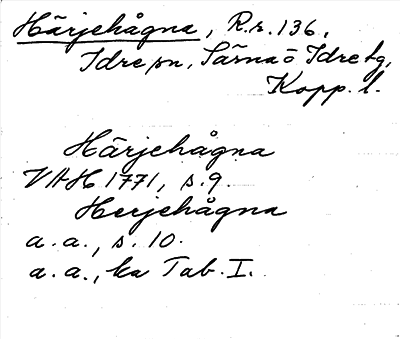 Härjehågna, R.r. 136,
Idre sn, Särna ö Idre tg,
Kopp. l.
Härjehågna
VAH 1771, s. 9.
Herjehågna
a. a., s. 10.
a. a., ka Tab. I.